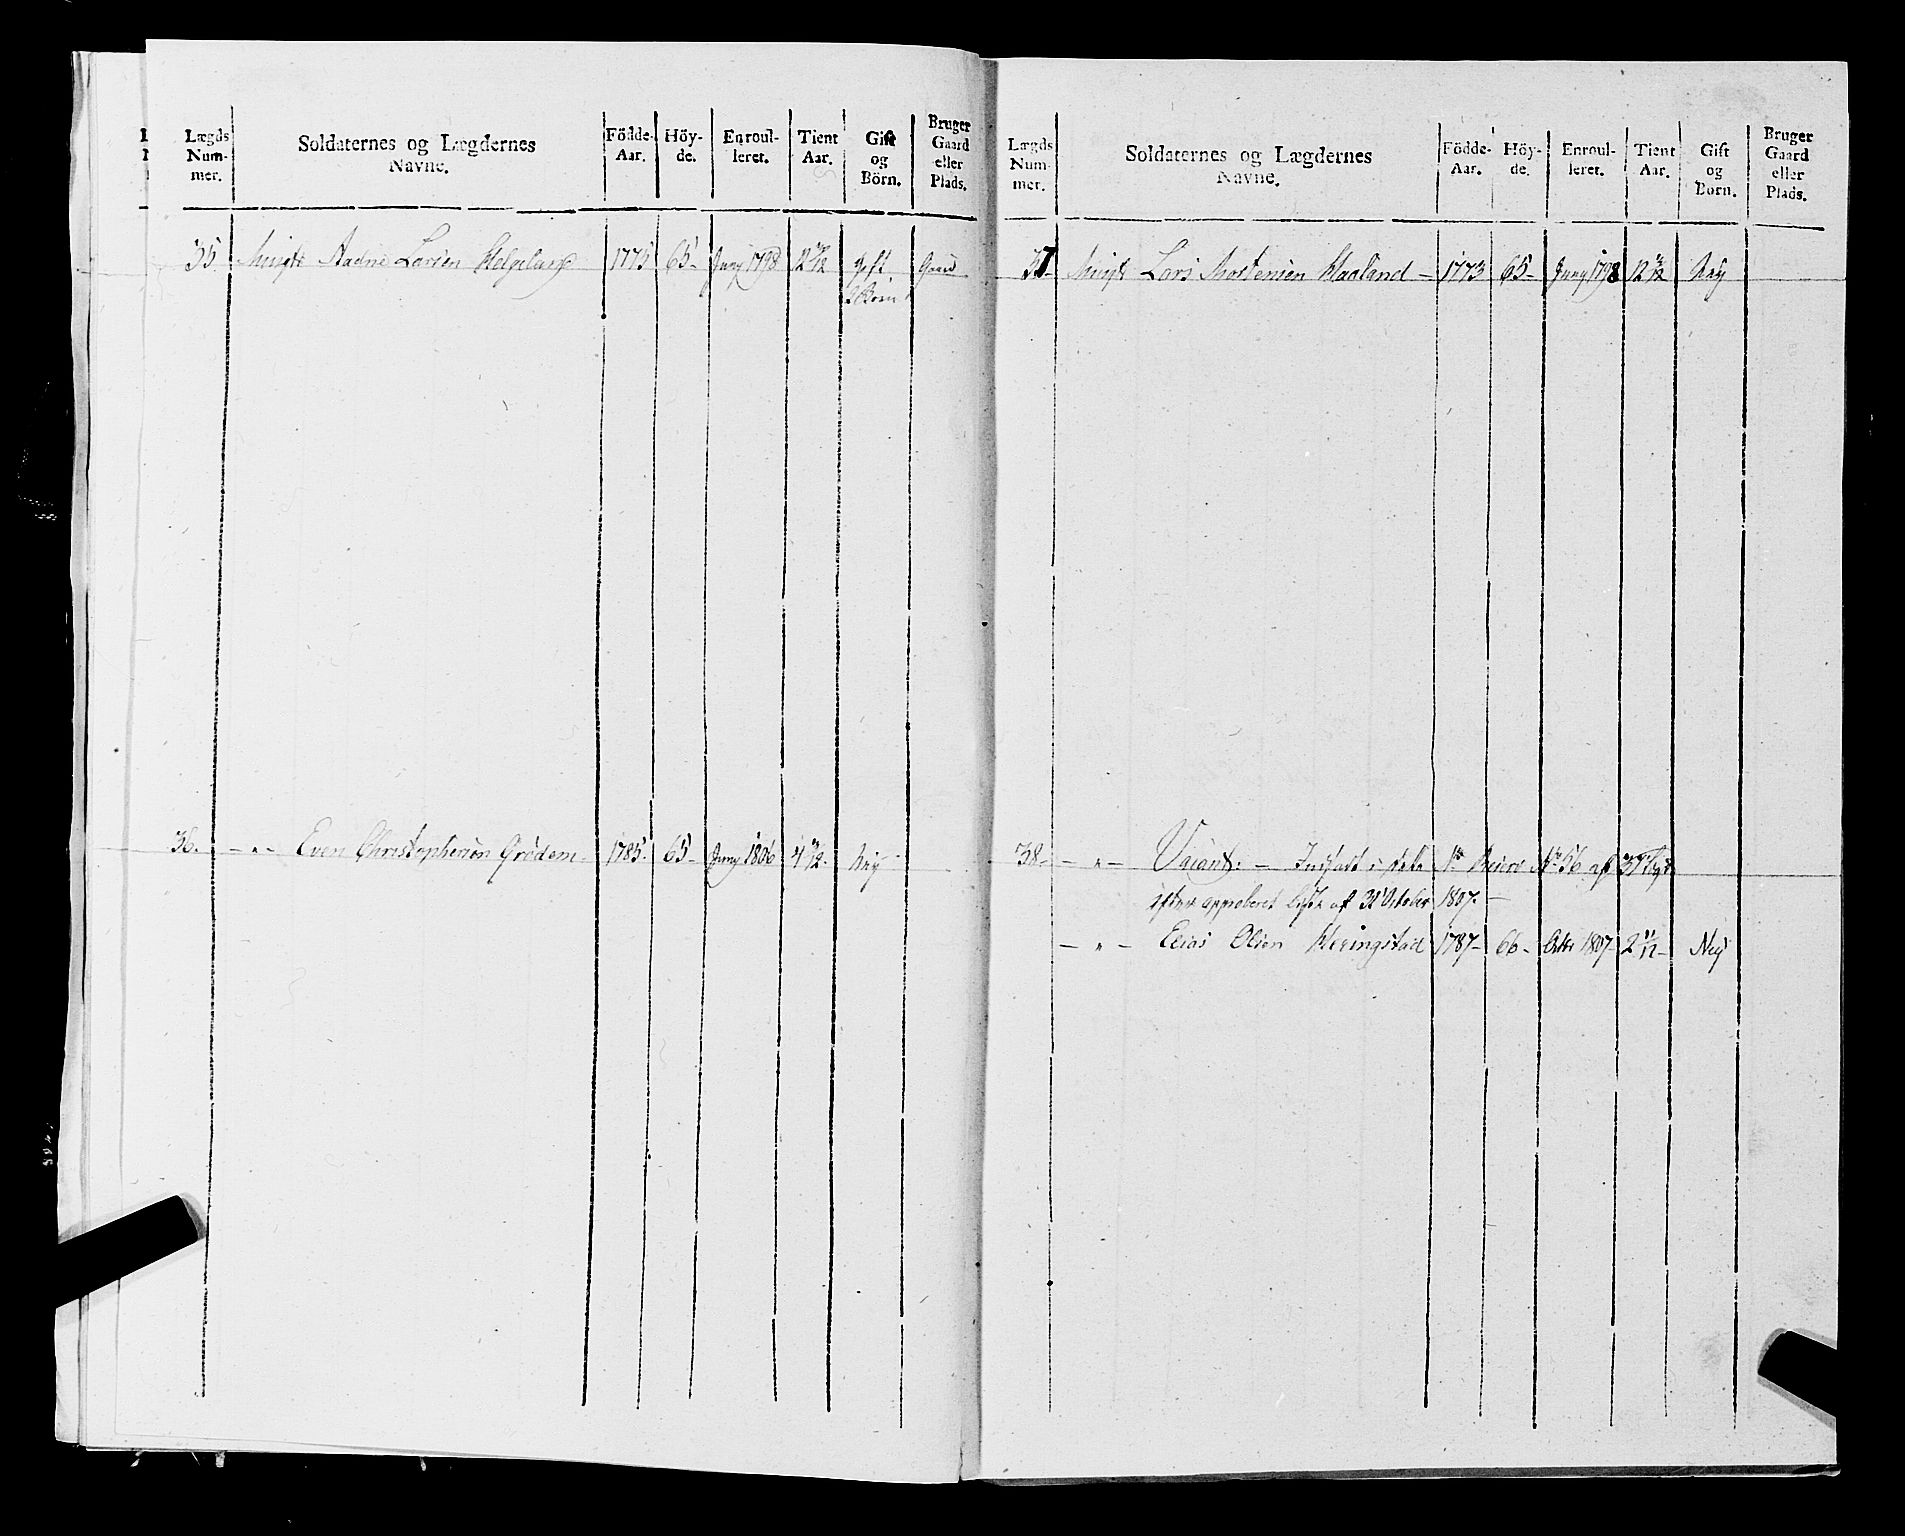 Lægds Num- mer. Soldaternes og Lægdernes Navne. Födde- Aar. Höy- de. Enroul- leret. Tient Aar. Gift og Börn. Bruger Gaard eller Plads.
35 Aadne Larsen Helgeland 1775 65- Juny 1798 12 Gift Gaard
2 Börn
36. - " - Even Christophersön Grödem- 1785- 65- Juny 1806 4 Ney
Lægds Num- mer. Soldaternes og Lægdernes Navne. Födde- Aar. Höy- de. Enroul- leret. Tient Aar. Gift og Börn. Bruger Gaard eller Plads.
37 Lars Mortensen Haaland - 1773 65- Juny 1798 12 Ney
38- - " - Vacant: - Indsadt i dette No 56 af
efter approberet Liste af 31 October 1807-
- " - Elias Olsen Heringstad 1787- 66- Octbr 1807- 2 11/12- Ney